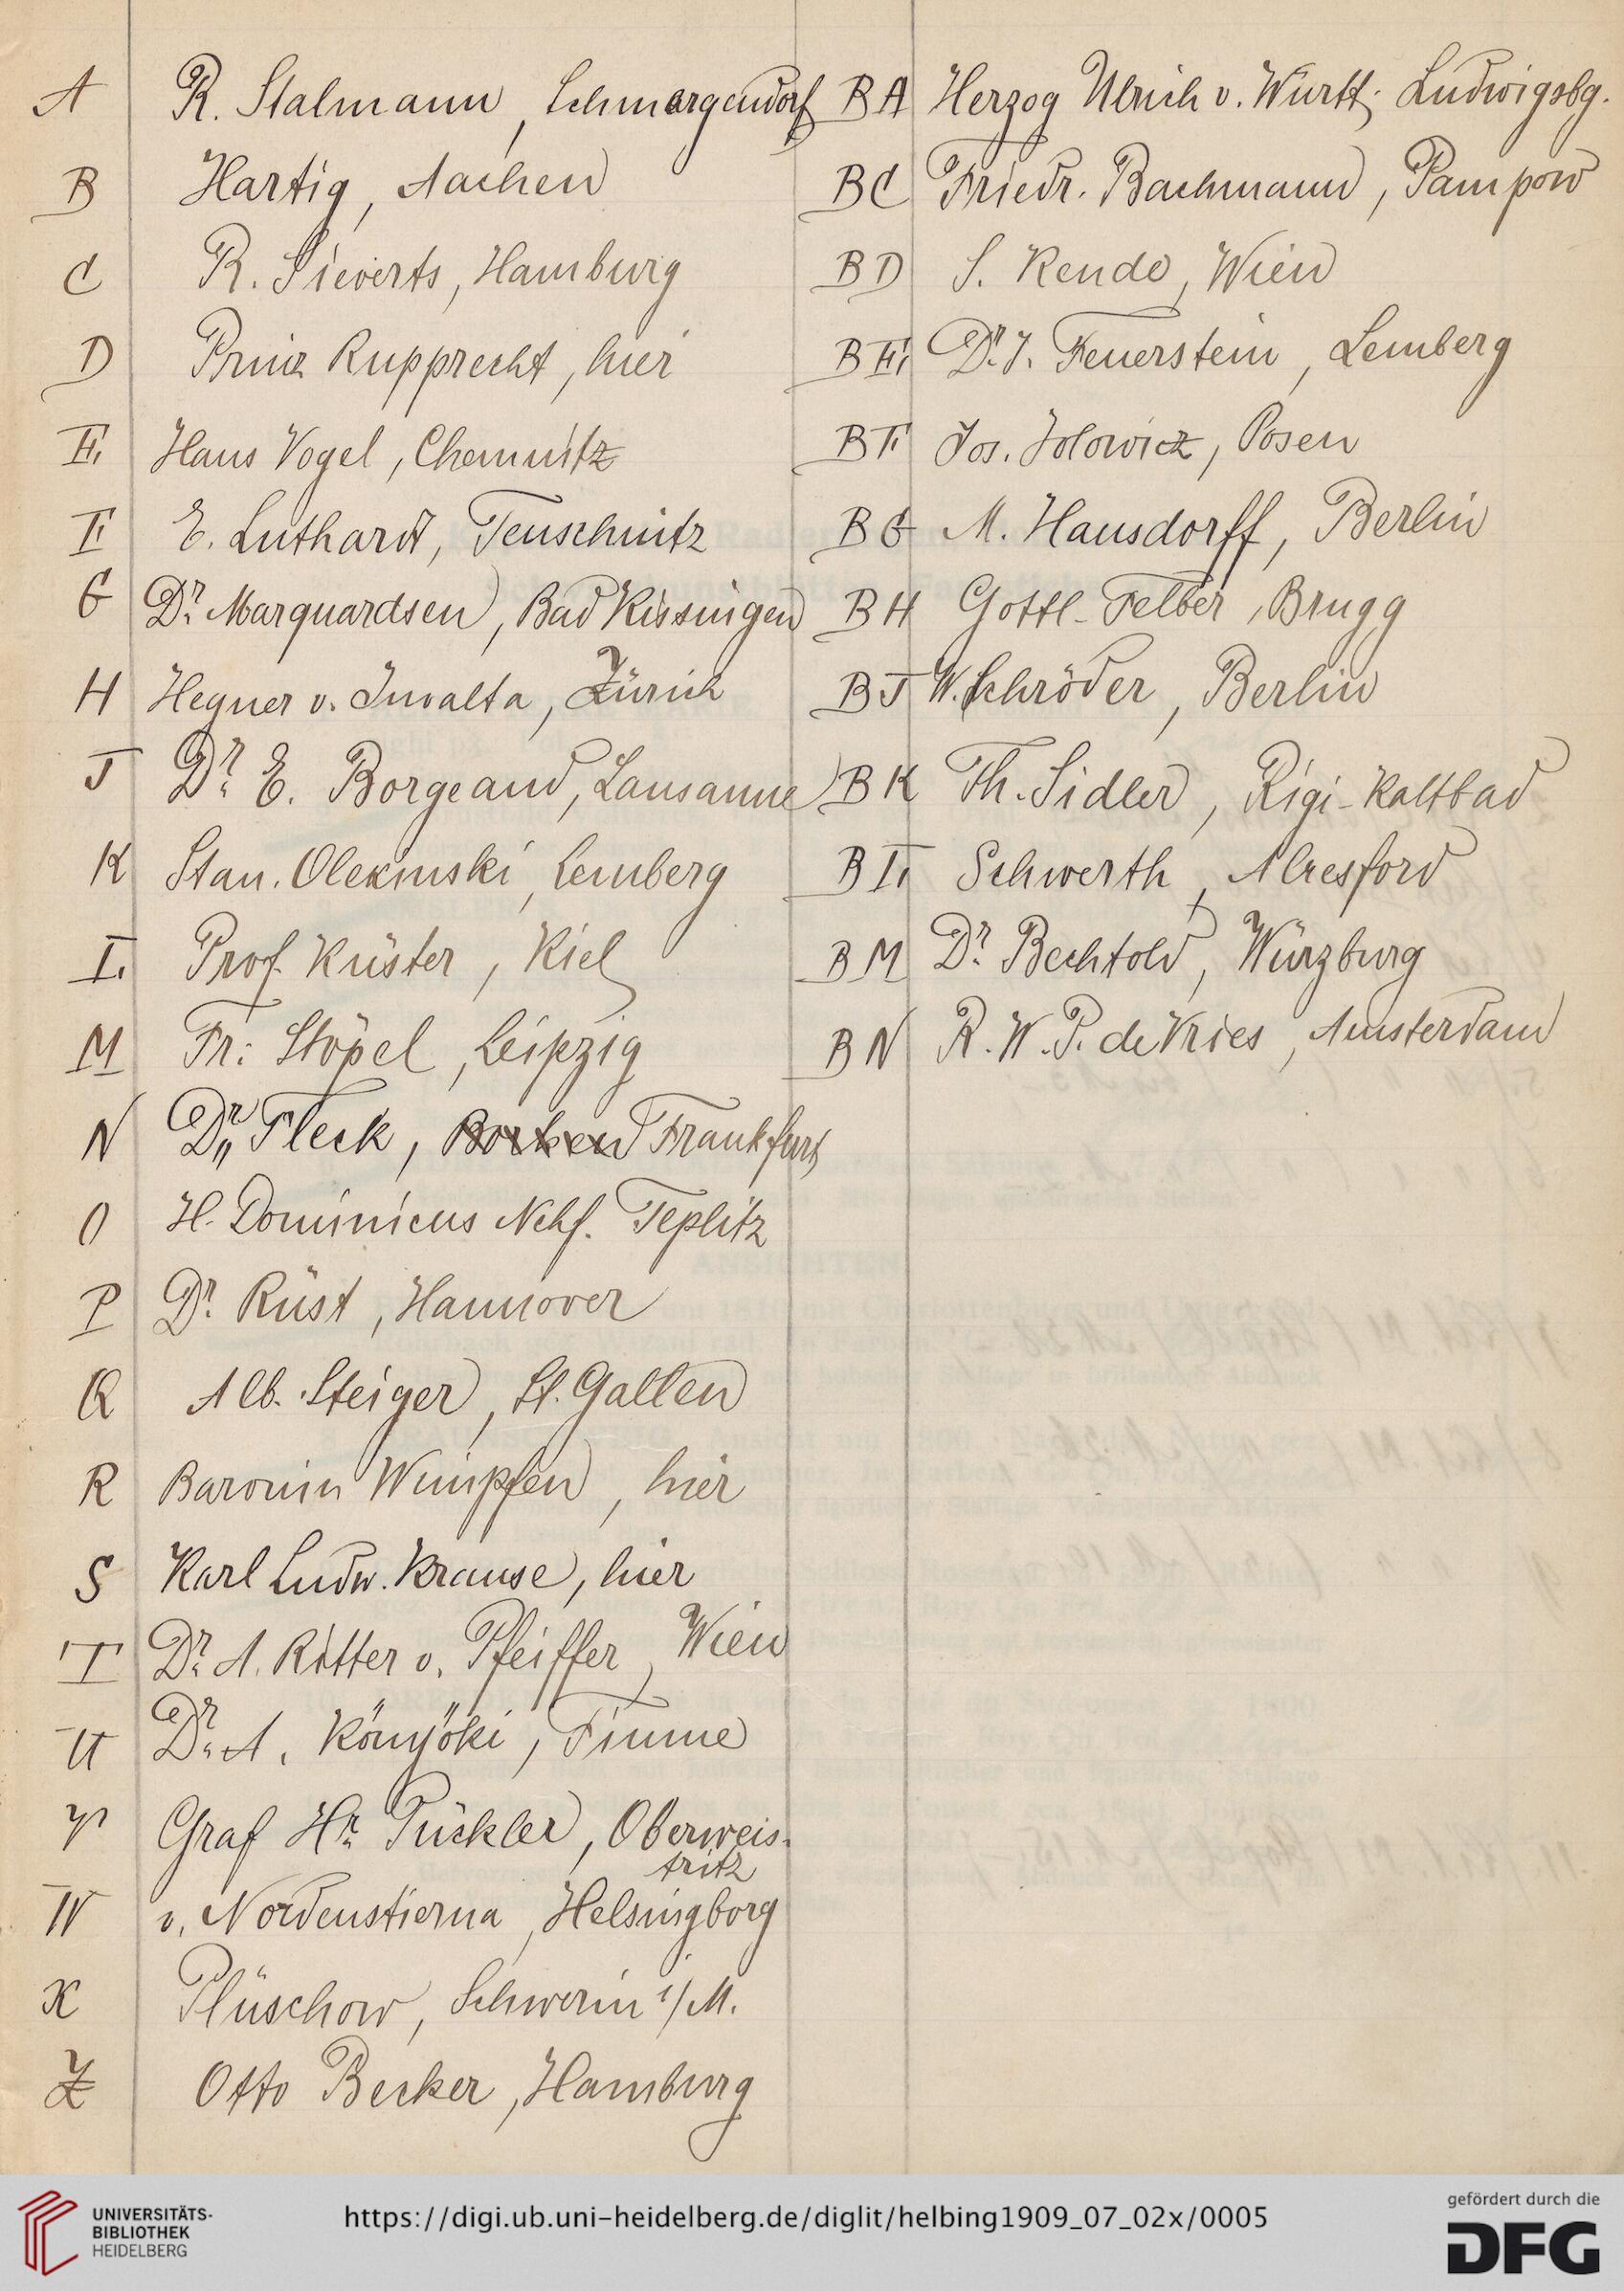 A R. Stalmann, Schmargendorf
B Hartig, Aachen
C R. Sieverts, Hamburg
D Prinz Rupprecht, hier
E Hans Vogel, Chemnitz
F E. Luthardt, Teuschnitz
G Dr. Marquardsen, Bad Kissingen
H Hegner v. Juvalta, Zürich
J Dr. E. Borgeaud, Lausanne
K Stan. Lemberg
L Prof. Küster, Kiel
M Fr. Stöpel, Leipzig
N Dr. Fleck, Borken Frankfurt
O H. Dominicus Nchf. Teplitz
P Dr. Rüst, Hannover
Q Alb. Steiger, St. Gallen
R Baronin Wimpfen, hier
S Karl Ludw. Krause, hier
T Dr. A. Ritter v. Pfeiffer, Wien
U Dr. A. Könyöki, Fiume
V Graf Hr. Pückler, Oberweis-
tritz
W v. Nordenstierna, Helsingborg
X Plüschow, Schwerin i/M.
Z Otto Becker, Hamburg
BA Herzog Ulrich v. Württ. Ludwigsbg.
BC Friedr. Bachmann, Pampow
BD S. Kende, Wien
BE Dr. J. Feuerstein, Lemberg
BF Jos. Jolowicz, Posen
BG M. Hausdorff, Berlin
BH Gottl. Felber, Brugg
BJ W. Schröder, Berlin
BK Th. Sidler, Rigi-Kaltbad
BL Schwerth, Alresford
BM Dr. Bechtold, Würzburg
BN R. W. P. de Vries, Amsterdam
UNIVERSITÄTS-
BIBLIOTHEK
HEIDELBERG
https://digi.ub.uni-heidelberg.de/diglit/helbing1909_07_02x/0005
gefördert durch die
DFG